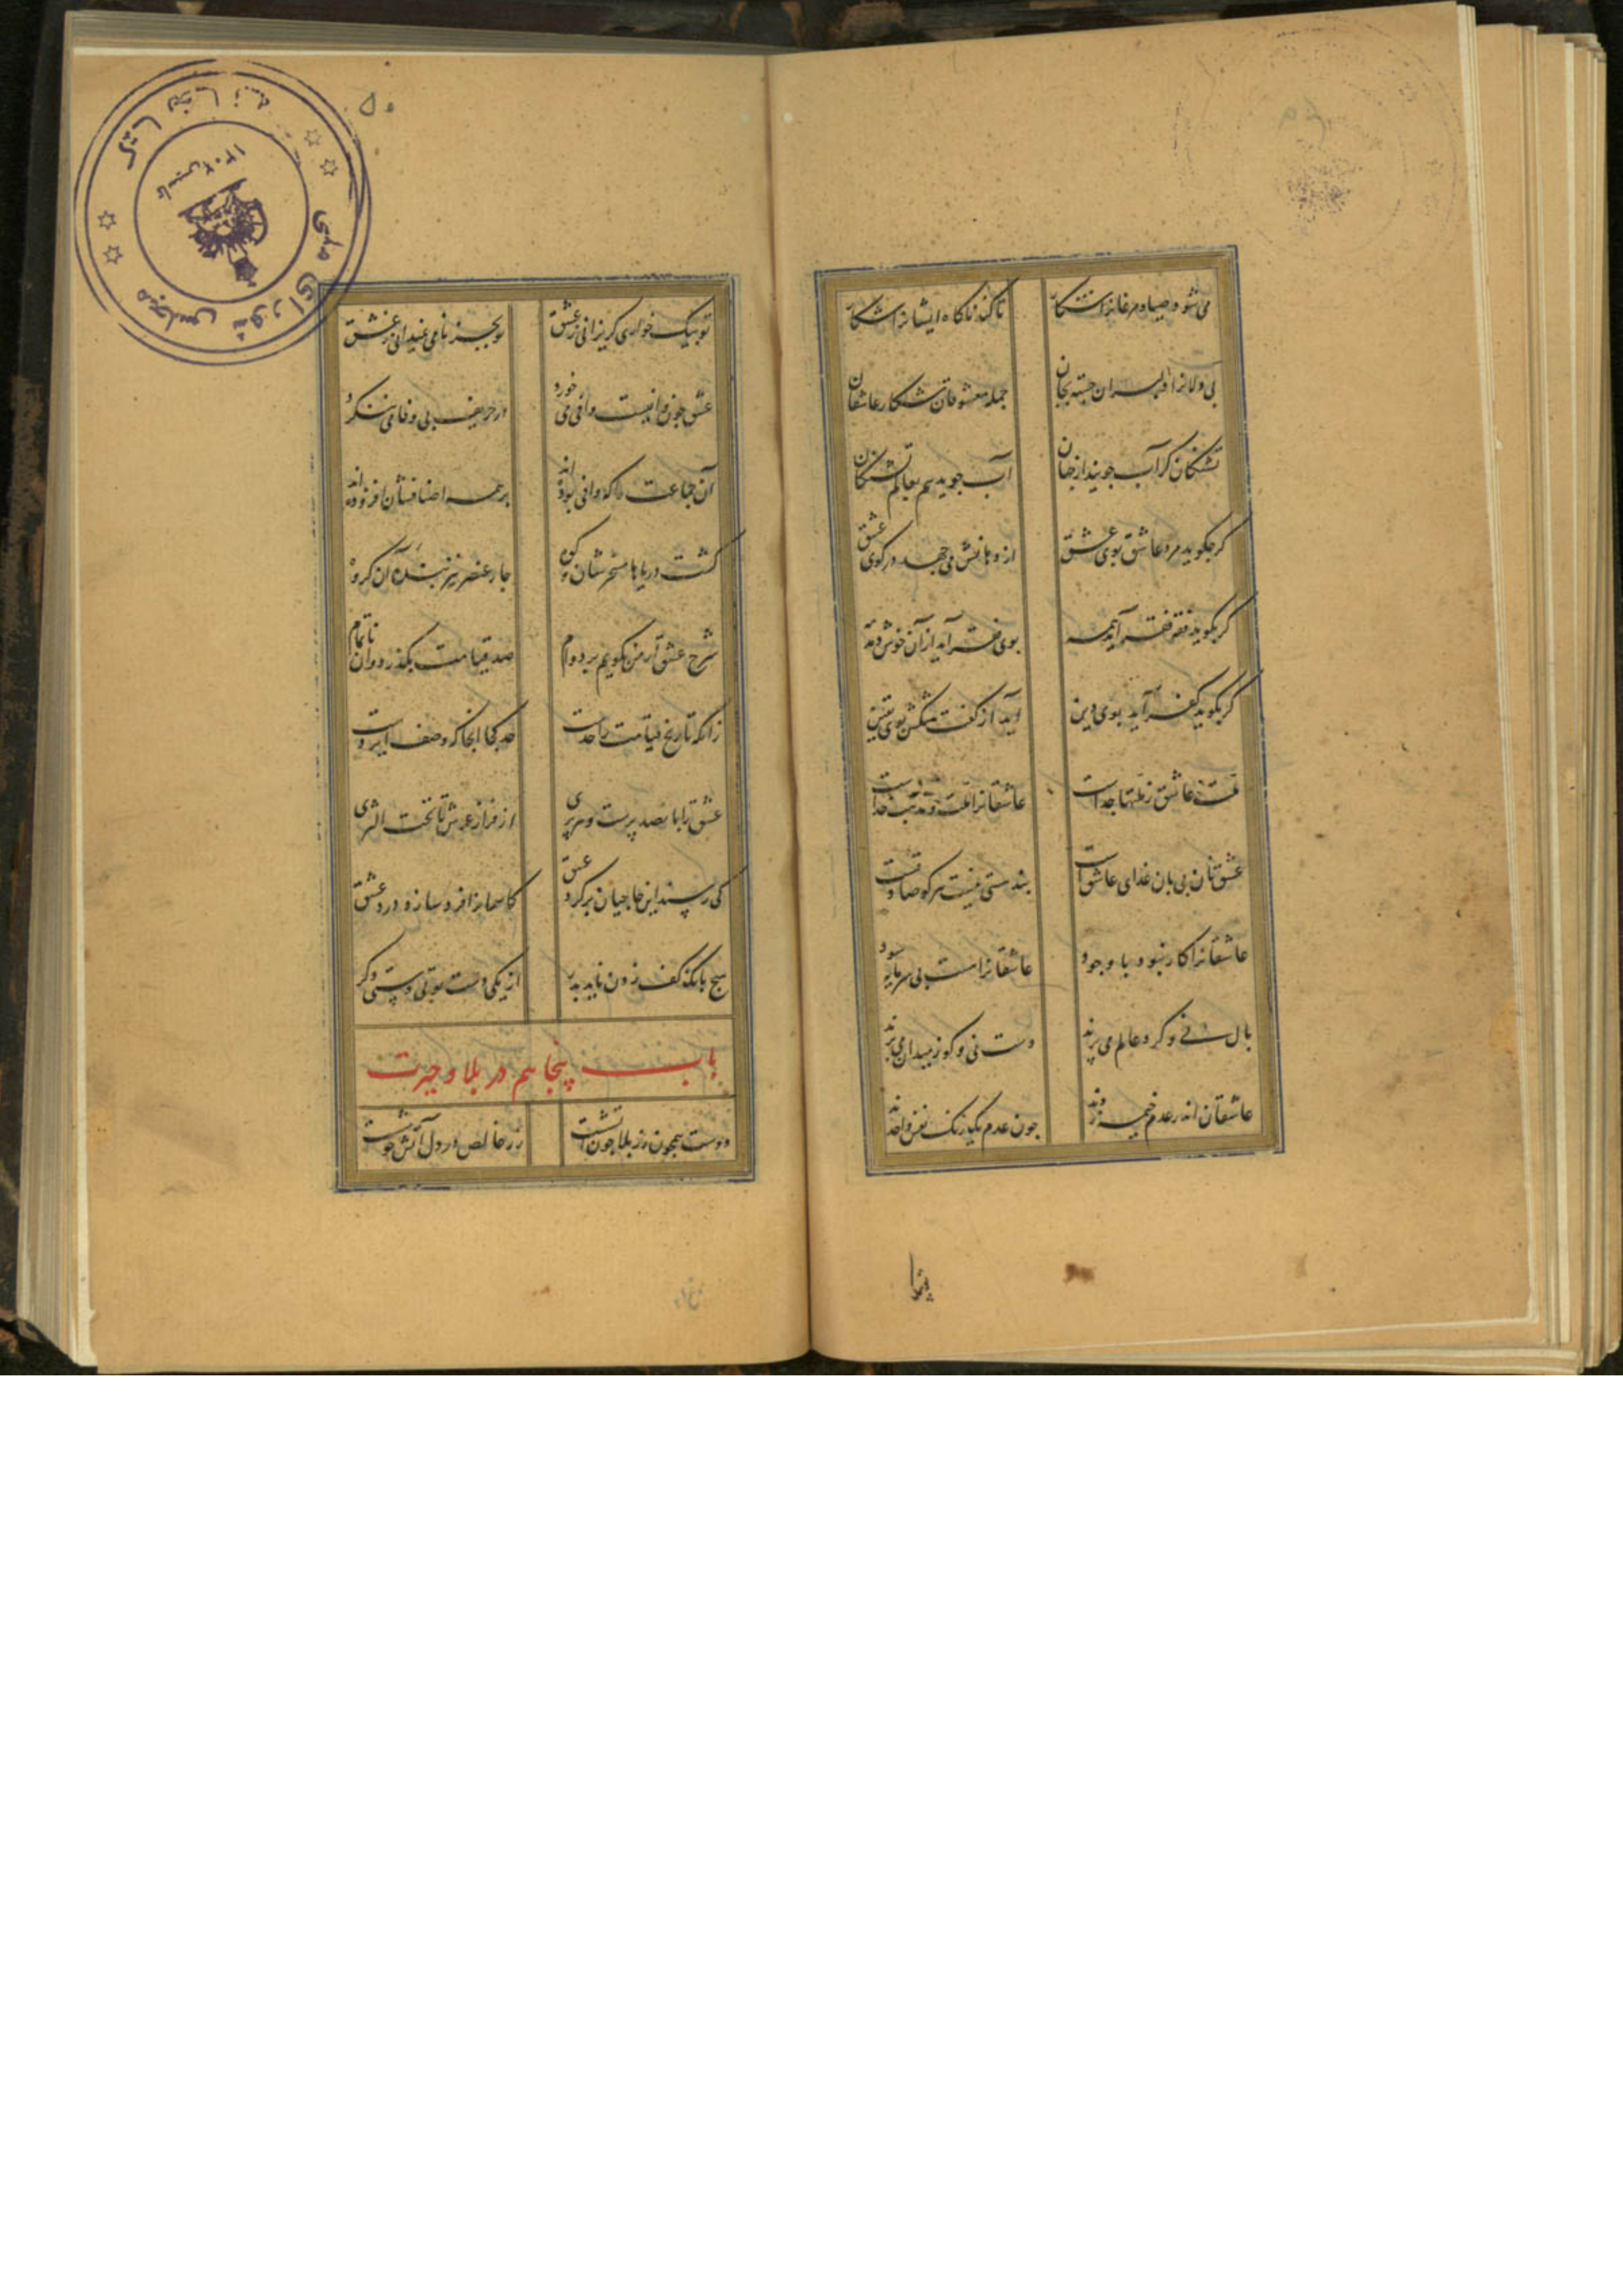 می شود صیاد مرغانرا شکار تا کند ناکاه ایشانرا شکار
بی دلانرا دلبران جسته بجان جمله معشوقان شکار عاشقان
تشنکان کر آب جویند از جهان آب جوید هم بعالم تشنکان
هرچه کوید مرد عاشق بوی عشق از دهانش می جهد در کوی عشق
کر بکوید فقه فقر آید همه بوی فقر آید از آن خوش دمدمه
کر بکوید کفر آید بوی دین آید از کفت شکش بوی یقین
ملت عاشق ز ملتها جداست عاشقانرا ملت و مذهب خداست
عشق نان بی نان غذای عاشق است بند هستی نیست هر کو صادقست
عاشقانرا کار نبود با وجود عاشقانرا هست بی سرمایه سود
بال نی و کرد عالم می پرند دست نی و کو ز میدان می برند
عاشقان اندر عدم خیمه زدند چون عدم یک رنک و نفس واحدند
۵۰
تو بیک خواری کریزانی ز عشق تو بجز نامی نمیدانی ز عشق
عشق چون وافیست وافی می خورد در حریف بی وفا می ننکرد
آن جماعت را که وافی بوده اند بر همه اصنافشان افزوده اند
کشت دریاها مسخرشان و کوه چار عنصر نیز بنده آن کروه
شرح عشق ار من بکویم بر دوام صد قیامت بکذرد وان ناتمام
زانکه تاریخ قیامت را حدست حد کجا آنجا که وصف ایزدست
عشق را پانصد پرست و هر پری از فراز عرش تا تحت الثری
کی رسند این خاجیان بر کرد عشق کاسمانرا فرد سازد درد عشق
هیچ بانک کف زدن ناید بدر از یکی دست تو بی دستی دکر
باب پنجاهم در بلا و حیرت
دوست همچون زر بلا چون آتشست زر خالص در دل آتش خوشست
کتابخانه مجلس شورای ملی